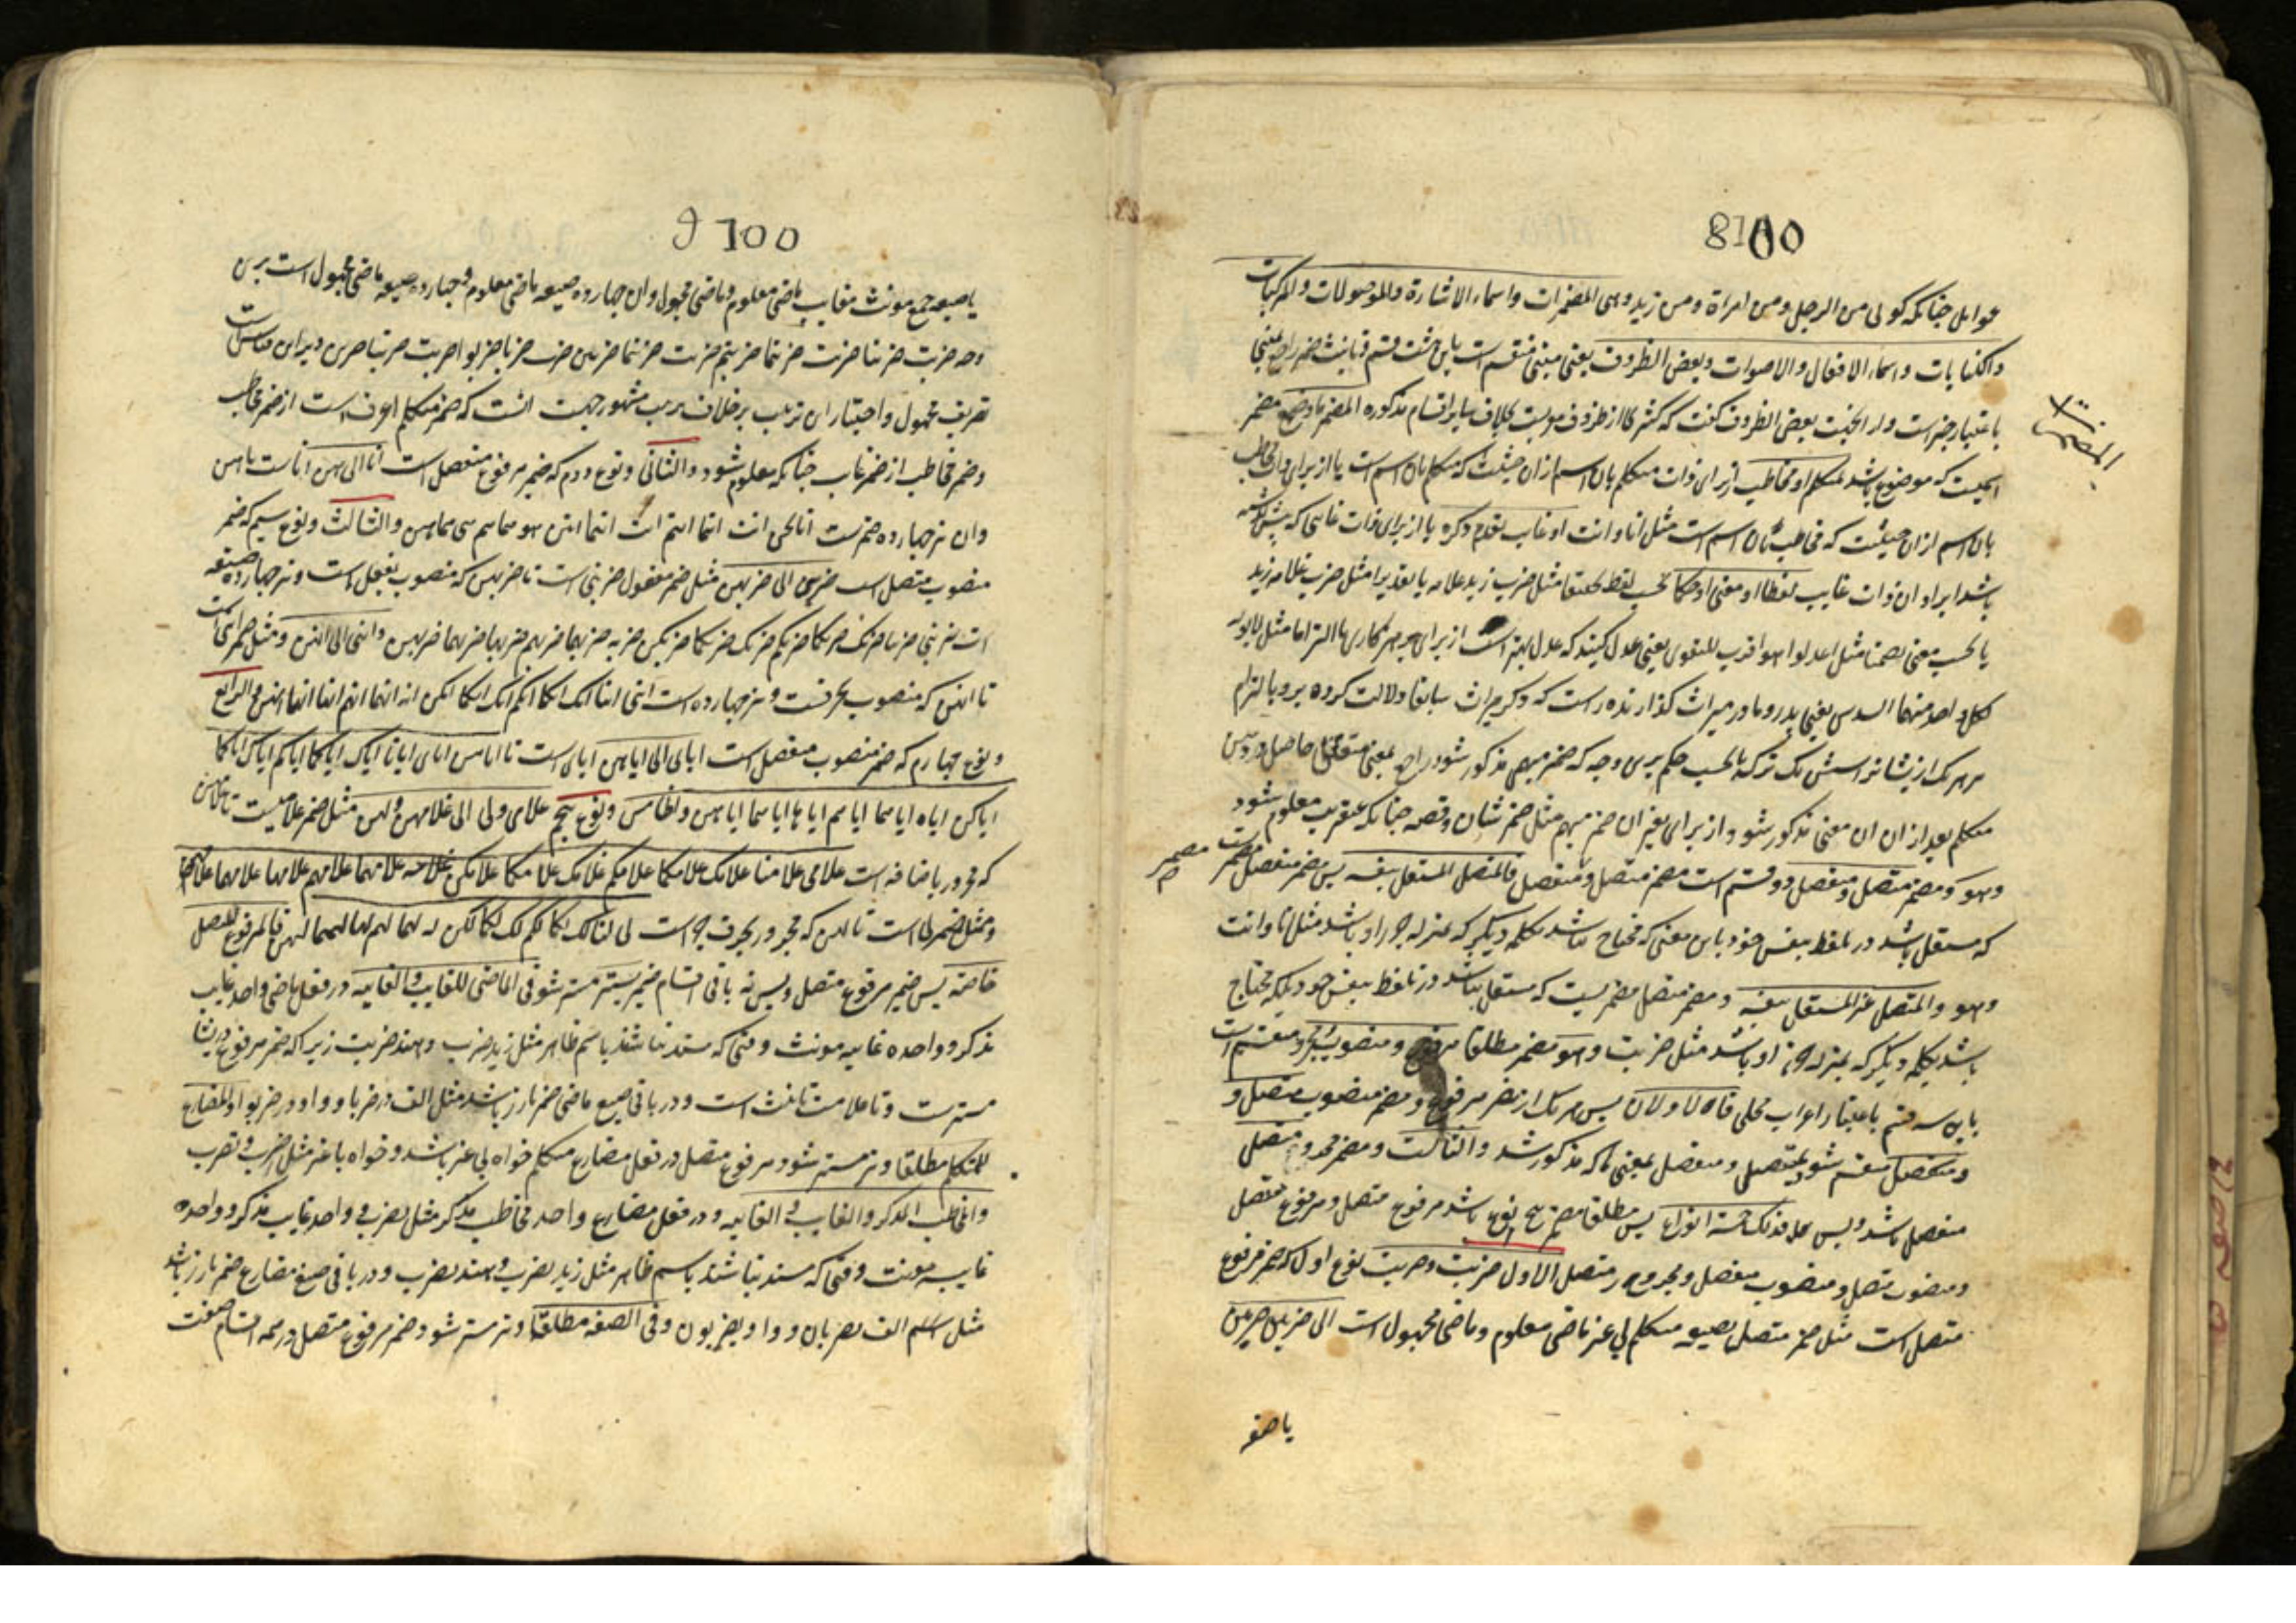 8100
عوامل چنانکه کوئی من الرجل ومن امراة ومن زید وهی المضمرات واسماء الاشارة والموصولات والمرکبات
والکنایات واسماء الافعال والاصوات وبعض الظروف یعنی مبنی منقسم است باین هشت قسم وتانیث ضمیر راجع بمبنی
باعتبار خبر است بعض الظروف گفت که اکثر ظروف معربست بخلاف سایر اقسام مذکوره المضمر ما وضع مضمر
المضمرات
اسمیست که موضوع باشد لمتکلم او مخاطب از برای ذات متکلم بان اسم ازان حیثیت که متکلم بان اسم است یا از برای ذات مخاطب
بان اسم ازان حیثیت که مخاطب بان اسم است مثل انا وانت او غایب تقدم ذکره یا از برای ذات غایبی که پیش گذشته
باشد ذات غایب لفظا او معنی او حکما بحسب لفظ تحقیقا مثل ضرب زید غلامه یا تقدیرا مثل ضرب غلامه زید
یا بحسب معنی تضمنا مثل اعدلوا هو اقرب للتقوی یعنی عدل کنید که عدل بهتر است از برای پرهیزکاری یا التزاما مثل لابویه
لکل واحد منهما السدس یعنی پدر ومادر میراث گذارنده راست که ذکر میراث سابقا دلالت کرده برو بالتزام
هر یک ازیشانرا شش یک ترکه یا بحسب حکم برین وجه که ضمیر مبهم مذکور شود راجع بمعنی متعقل حاصل در ذهن
متکلم بعد ازان ان معنی مذکور شود از برای تفسیر ان ضمیر مبهم مثل ضمیر شان وقصه چنانکه عنقریب معلوم شود
وهو ومضمر متصل ومنفصل دو قسم است مضمر متصل ومنفصل فالمنفصل المستقل بنفسه پس مضمر منفصل مضمریست
که مستقل باشد در تلفظ بنفس خود باین معنی که محتاج نباشد بکلمه دیگر که بمنزله جزء او باشد مثل انا وانت
وهو والمتصل غیر المستقل بنفسه ومضمر متصل مضمریست که مستقل نباشد در تلفظ بنفس خود بلکه محتاج
باشد بکلمه دیگر که بمنزله جزء او باشد مثل ضربت وهو مضمر مطلقا مرفوع ومنصوب ومجرور منقسم است
باین سه قسم باعتبار اعراب محلی فالاولان پس هر یک از مضمر مرفوع ومضمر منصوب متصل و
ومنفصل منقسم شود بمتصل ومنفصل بمعنی که مذکور شد والثالث ومضمر مجرور متصل
منفصل نباشد پس فذلک خمسة انواع پس مطلقا مضمر پنج نوع باشد مرفوع متصل ومرفوع منفصل
ومنصوب متصل ومنصوب منفصل ومجرور متصل الاول ضربت وضربت نوع اول که ضمیر مرفوع
متصل است مثل ضمیر متصل بصیغه متکلم بی غیر ماضی معلوم وماضی مجهول است الی ضربن ضربن
یا صیغه
9100
یا صیغه جمع مونث مغایب ماضی معلوم وماضی مجهول وان چهارده صیغه ماضی معلوم وچهارده صیغه ماضی مجهول است برین
وجه ضربت ضربنا ضربت ضربتما ضربتم ضربت ضربتما ضربتن ضرب ضربا ضربوا ضربت ضربتا ضربن
تعریف مجهول واختیار این ترتیب برخلاف ترتیب مشهور جهت انست که ضمیر متکلم اعرف است از ضمیر مخاطب
وضمیر مخاطب از ضمیر غایب چنانکه معلوم شود والثانی ونوع دوم که ضمیر مرفوع منفصل است انا الی هن انا ست تا هن
وان نیز چهارده ضمیرست انا نحن انت انتما انتم انت انتما انتن هو هما هم هی هما هن والثالث ونوع سیم که ضمیر
منصوب متصل است ضربنی الی ضربهن مثل ضمیر مفعول ضربنی است تا ضربهن که منصوب بفعل است ونیز چهارده صیغه
است ضربنی ضربنا ضربک ضربکما ضربکم ضربک ضربکما ضربکن ضربه ضربهما ضربهم ضربها ضربهما ضربهن واننی الی انهن ومثل ضمیر اننی است
تا انهن که منصوب بحرفست ونیز چهارده است اننی اننا انک انکما انکم انک انکما انکن انه انهما انهم انها انهما انهن والرابع
ونوع چهارم که ضمیر منصوب منفصل است ایای الی ایاهن ایای است تا ایاهن ایای ایانا ایاک ایاکما ایاکم ایاک ایاکما
ایاکن ایاه ایاهما ایاهم ایاها ایاهما ایاهن والخامس ونوع پنجم غلامی ولی الی غلامهن ولهن مثل ضمیر غلامیست تا غلامهن
که مجرور باضافه است غلامی غلامنا غلامک غلامکما غلامکم غلامک غلامکما غلامکن غلامه غلامهما غلامهم غلامها غلامهما غلامهن
ومثل ضمیر لی است تا لهن که مجرور بحرف جر است لی لنا لک لکما لکم لک لکما لکن له لهما لهم لها لهما لهن فالمرفوع المتصل
خاصة پس ضمیر مرفوع متصل وبس نه باقی اقسام ضمیر یستتر مستتر شود فی الماضی للغایب والغایبه در فعل ماضی واحد غایب
مذکر وواحده غایبه مونث وقتی که مسند نباشند باسم ظاهر مثل زید ضرب وهند ضربت زیرا که ضمیر مرفوع دریشان
مسترست وتا علامت تانیث است ودر باقی صیغ ماضی ضمیر بارز باشد مثل الف در ضربا وواو در ضربوا والمضارع
للمتکلم مطلقا ونیز مستتر شود مرفوع متصل در فعل مضارع متکلم خواه بی غیر باشد وخواه با غیر مثل اضرب ونضرب
والمخاطب المذکر والغایب والغایبه ودر فعل مضارع واحد مخاطب مذکر مثل تضرب وواحد غایب مذکر وواحده
غایبه مونث وقتی که مسند نباشند باسم ظاهر مثل زید یضرب وهند تضرب ودر باقی صیغ مضارع ضمیر بارز باشد
مثل الف یضربان وواو یضربون وفی الصفه مطلقا ونیز مستتر شود ضمیر مرفوع متصل در همه اقسام صفت